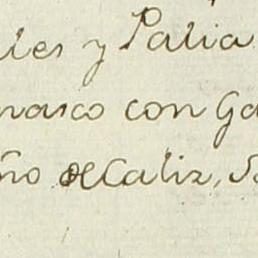 les y Palia
masco con Ga
ño de Caliz, S